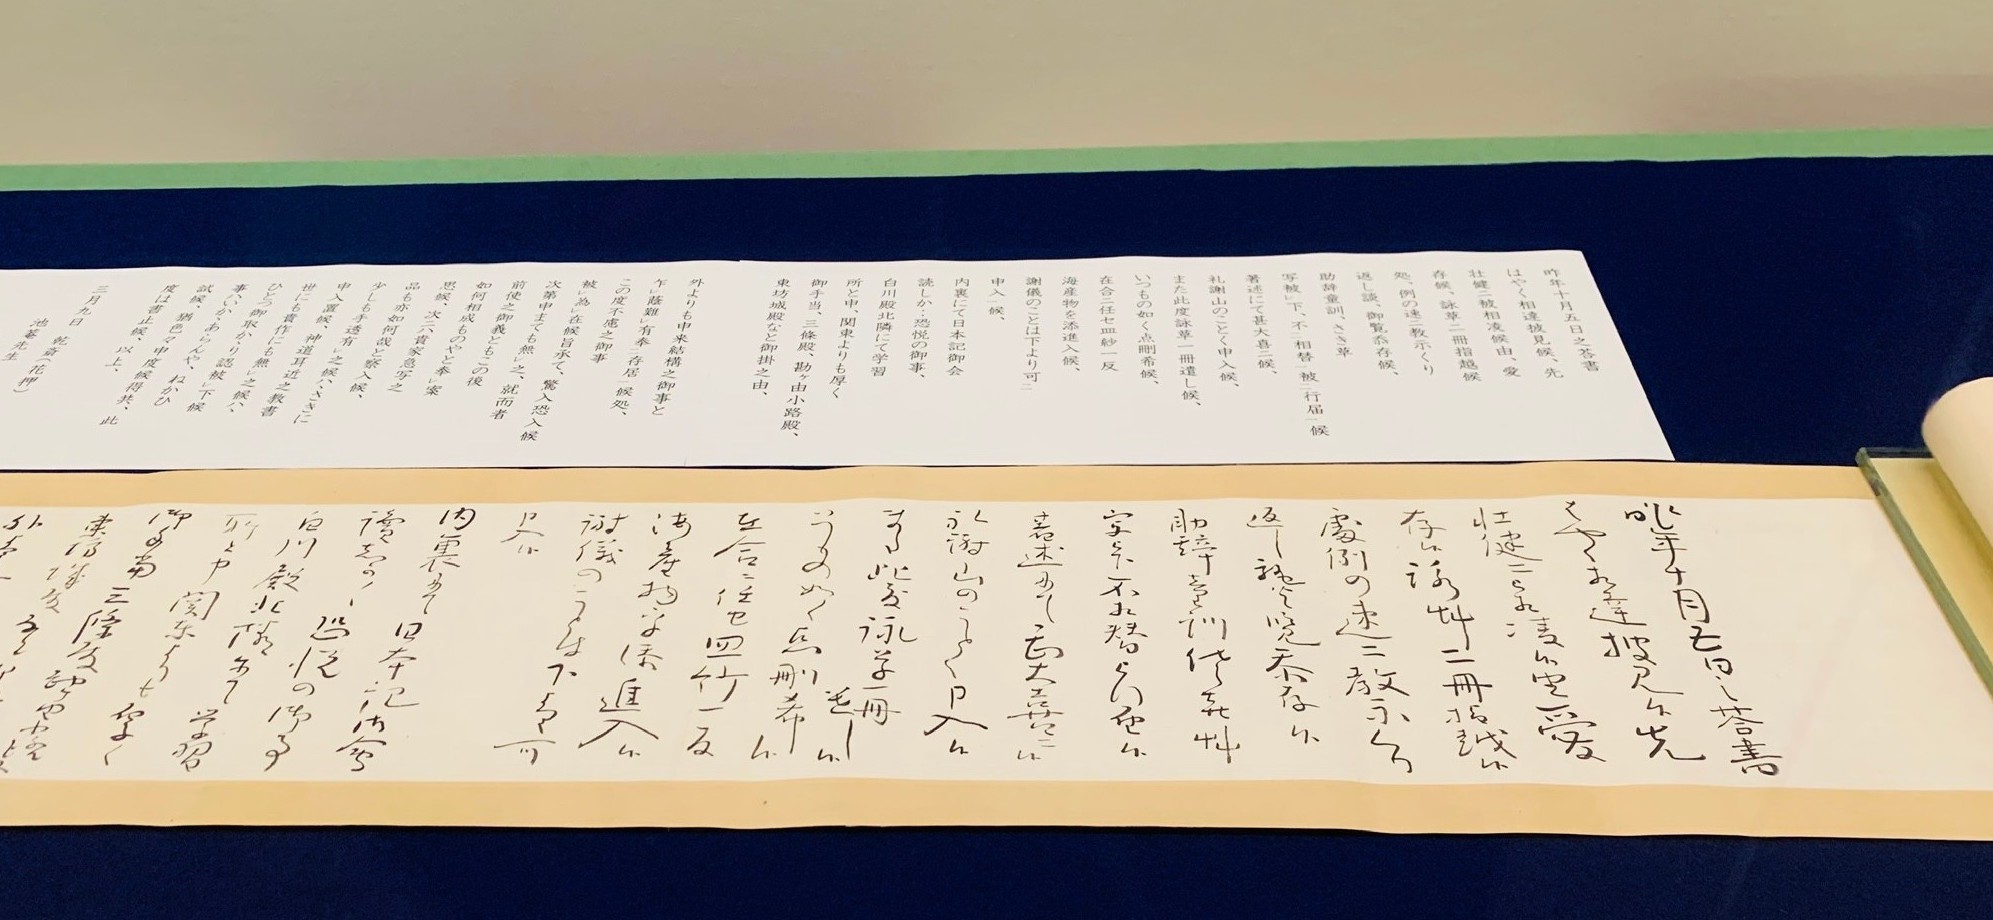 昨年十月五日之答書
はやく相達披見候、先
壮健ニ被相凌候由、愛
存候、詠草二冊指越候
処、例の速ニ教示くり
返し談、御覧忝存候、
助辞童訓、ささ草
写被レ下、不二相替一被二行届一候
著述にて甚大喜ニ候、
礼謝山のことく申入候、
また此度詠草一冊遣し候、
いつもの如く点削希候、
在合ニ任セ皿紗一反
海産物を添進入候、
謝儀のことは下より可ニ
申入一候、
内裏にて日本記御会
読しか…恐悦の御事、
白川殿北隣にて学習
所と申、関東よりも厚く
御手当、三條殿、勘ケ由小路殿、
東坊城殿など御掛之由、
外よりも申来結構之御事と
乍レ蔭難レ有奉二存居一候処、
この度不慮之御事
被レ為レ在候旨承て、驚入恐入候
次第申までも無レ之、就而者
前使之御義ともこの後
如何相成ものやと奉レ案
思候、次ニ六貴家急写之
品も亦如何哉と察入候、
少しも手透有レ之候ハ、ささに
申入置候、神道耳近之教書
世にも貴作にも無レ之候ハ、
ひとつ御取かかり認被レ下候
事ハいかゝあらんや、ねかひ
試候、猶色々申度候得共、此
度は書止候、以上、
三月九日　乾斎（花押）
池菴先生
昨年十月五日之答書
はやく相達披見候先
壮健ニ被相凌候由愛
存候詠艸二冊指越候
處例の速ニ教示くり
返し
助辞童訓佐喜艸
写被下不相替被行届候
著述にて甚大喜ニ候
礼謝山のことく申入候
また此度詠草一冊遣し候
いつものめく点削希候
在合ニ任せ皿竹一反
海産物を添進入候
謝儀のことは下より可
申入候
内裏にて日本記御會
讀しか〳〵恐悦の御事
白川殿北隣にて学習
所と申関东よりも厚く
御手当三條殿勘ケ由小路
東坊城殿
外より